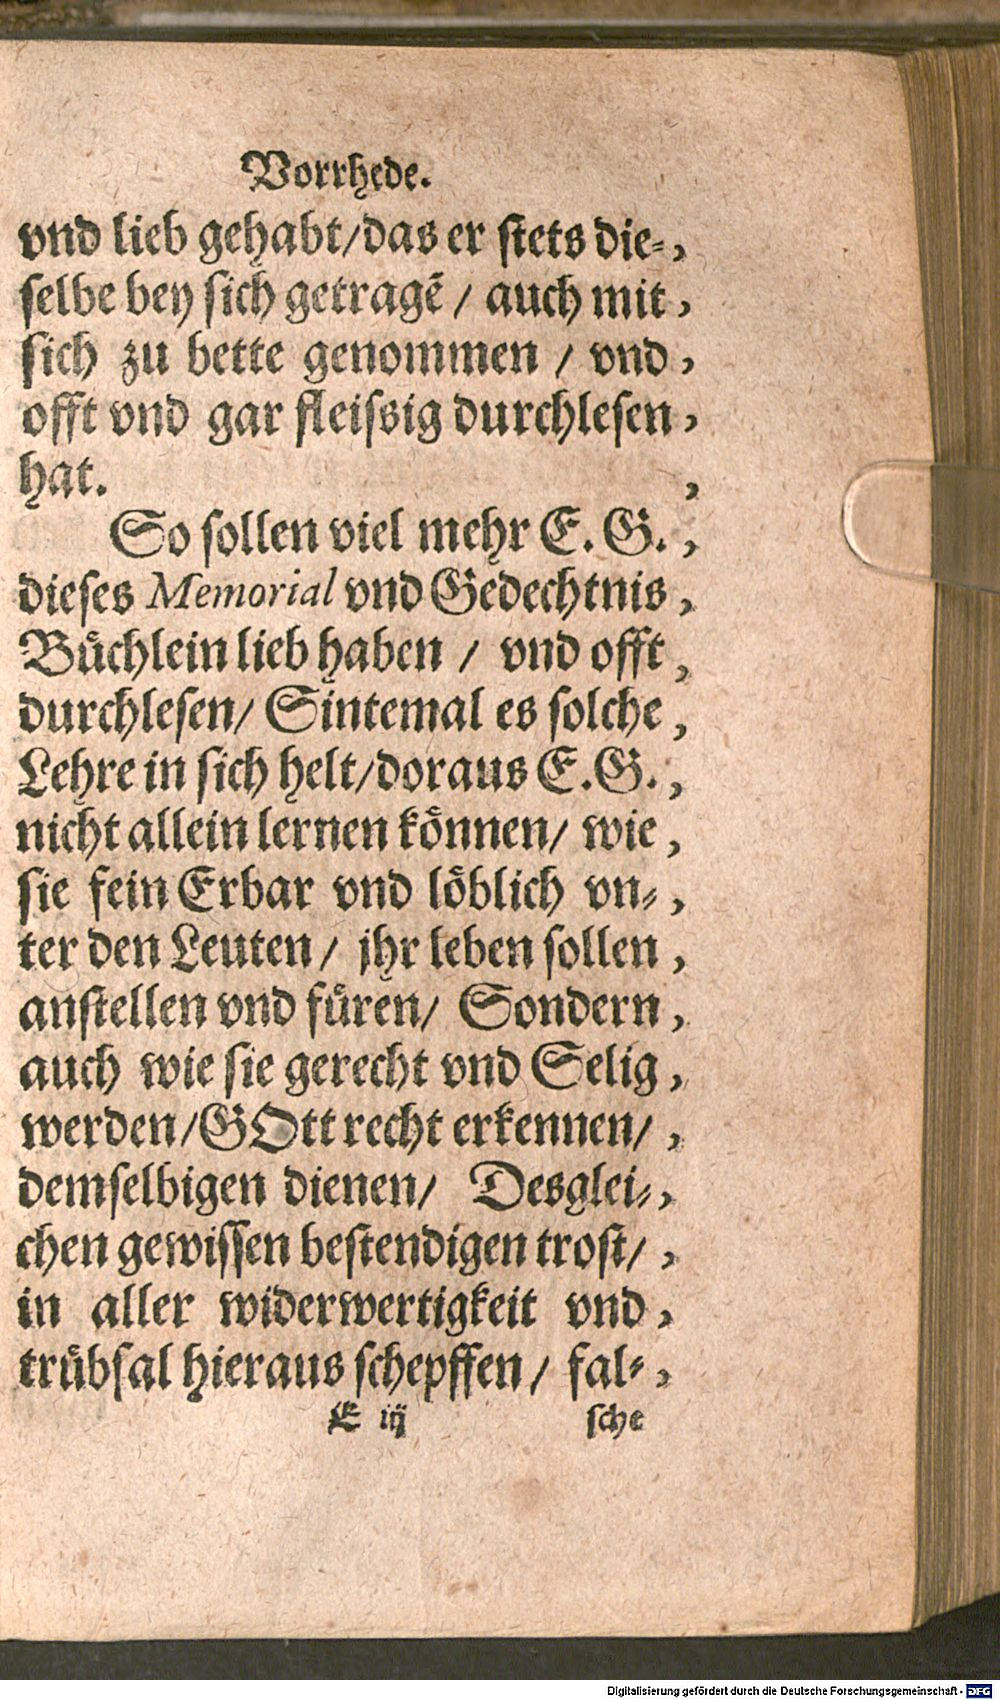 Vorrhede.
vnd lieb gehabt/das er stets die⸗,
selbe bey sich getragẽ / auch mit,
sich zu bette genommen / vnd,
offt vnd gar fleissig durchlesen,
hat. ,
So sollen viel mehr E. G.,
dieses Memorial vnd Gedechtnis,
Bůchlein lieb haben / vnd offt,
durchlesen/ Sintemal es solche,
Lehre in sich helt/doraus E.G.,
nicht allein lernen kőnnen/ wie,
sie fein Erbar vnd lőblich vn⸗,
ter den Leuten/ jhr leben sollen,
anstellen vnd fůren/ Sondern,
auch wie sie gerecht vnd Selig,
werden/GOtt recht erkennen/,
demselbigen dienen/ Desglei⸗,
chen gewissen bestendigen trost/,
in aller widerwertigkeit vnd,
trůbsal hieraus schepffen/ fal⸗,
E iij sche
Digitalisierung gefördert durch die Deutsche Forschungsgemeinschaft - DFG